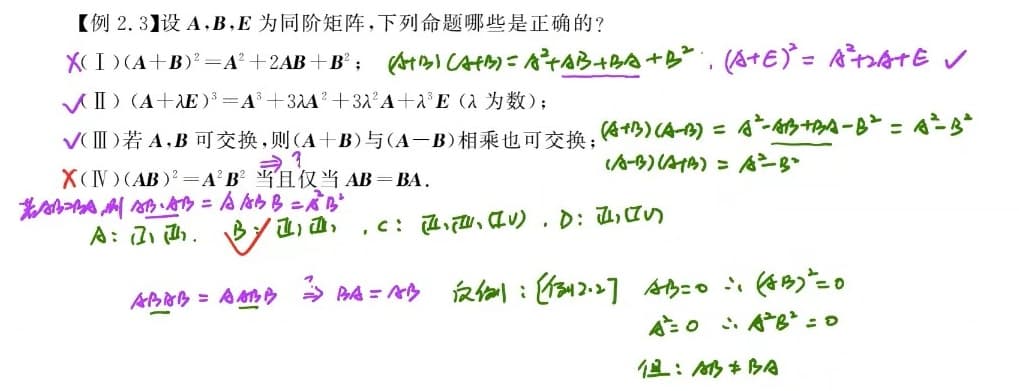 【例 2.3】设 A,B,E 为同阶矩阵,下列命题哪些是正确的?
X(Ⅰ)(A+B)²=A²+2AB+B²; (A+B)(A+B)=A²+AB+BA+B²; (A+E)²=A²+2A+E ✓
✓(Ⅱ)(A+λE)³=A³+3λA²+3λ²A+λ³E (λ 为数);
✓(Ⅲ)若 A,B 可交换,则(A+B)与(A-B)相乘也可交换; (A+B)(A-B)=A²-AB+BA-B²=A²-B²
(A-B)(A+B)=A²-B²
⇒?
X(Ⅳ)(AB)²=A²B² 当且仅当 AB=BA.
若AB=BA,则 AB·AB=AABB=A²B²
A: (Ⅰ),(Ⅱ). B: (Ⅱ),(Ⅲ), ✓ , C: (Ⅱ),(Ⅲ),(Ⅳ). D: (Ⅱ),(Ⅳ)
ABAB=AABB ⇒? BA=AB 反例:[例2.2] AB=0 ∴(AB)²=0
A²=0 ∴A²B²=0
但:AB≠BA